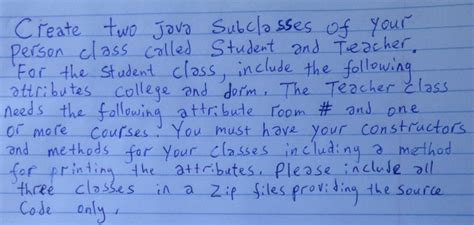 Create two java Subclasses of your
person class called Student and Teacher.
For the student class, include the following
attributes college and dorm. The Teacher class
needs the following attribute room # and one
or more courses. You must have your constructors
and methods for your classes including a method
for printing the attributes. Please include all
three classes in a zip files providing the source
Code only.